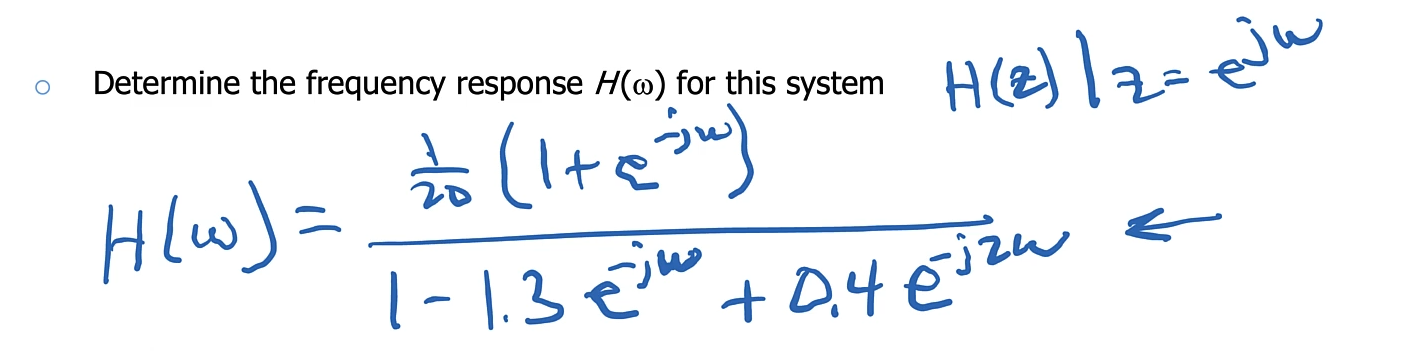 Determine the frequency response H(ω) for this system
H(z)|z = e^jω
H(ω) = 1/20 (1 + e^-jω)
1 - 1.3 e^-jω + 0.4 e^-j2ω ←